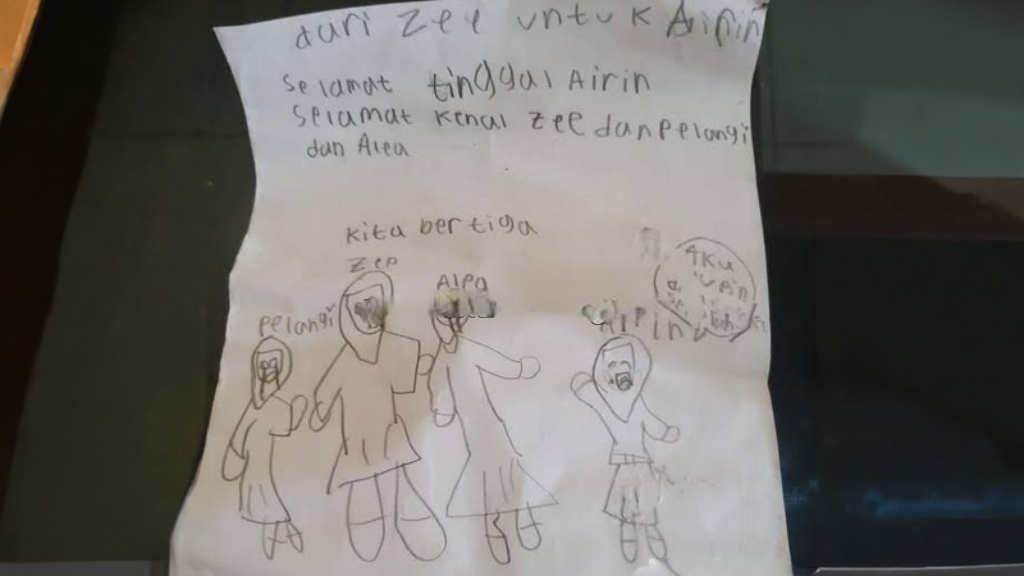 dari Zee untuk Airin
selamat tinggal Airin
selamat kenal zee dan pelangi
dan Alea
kita bertiga
zee
Alea
pelangi
Airin
Aku